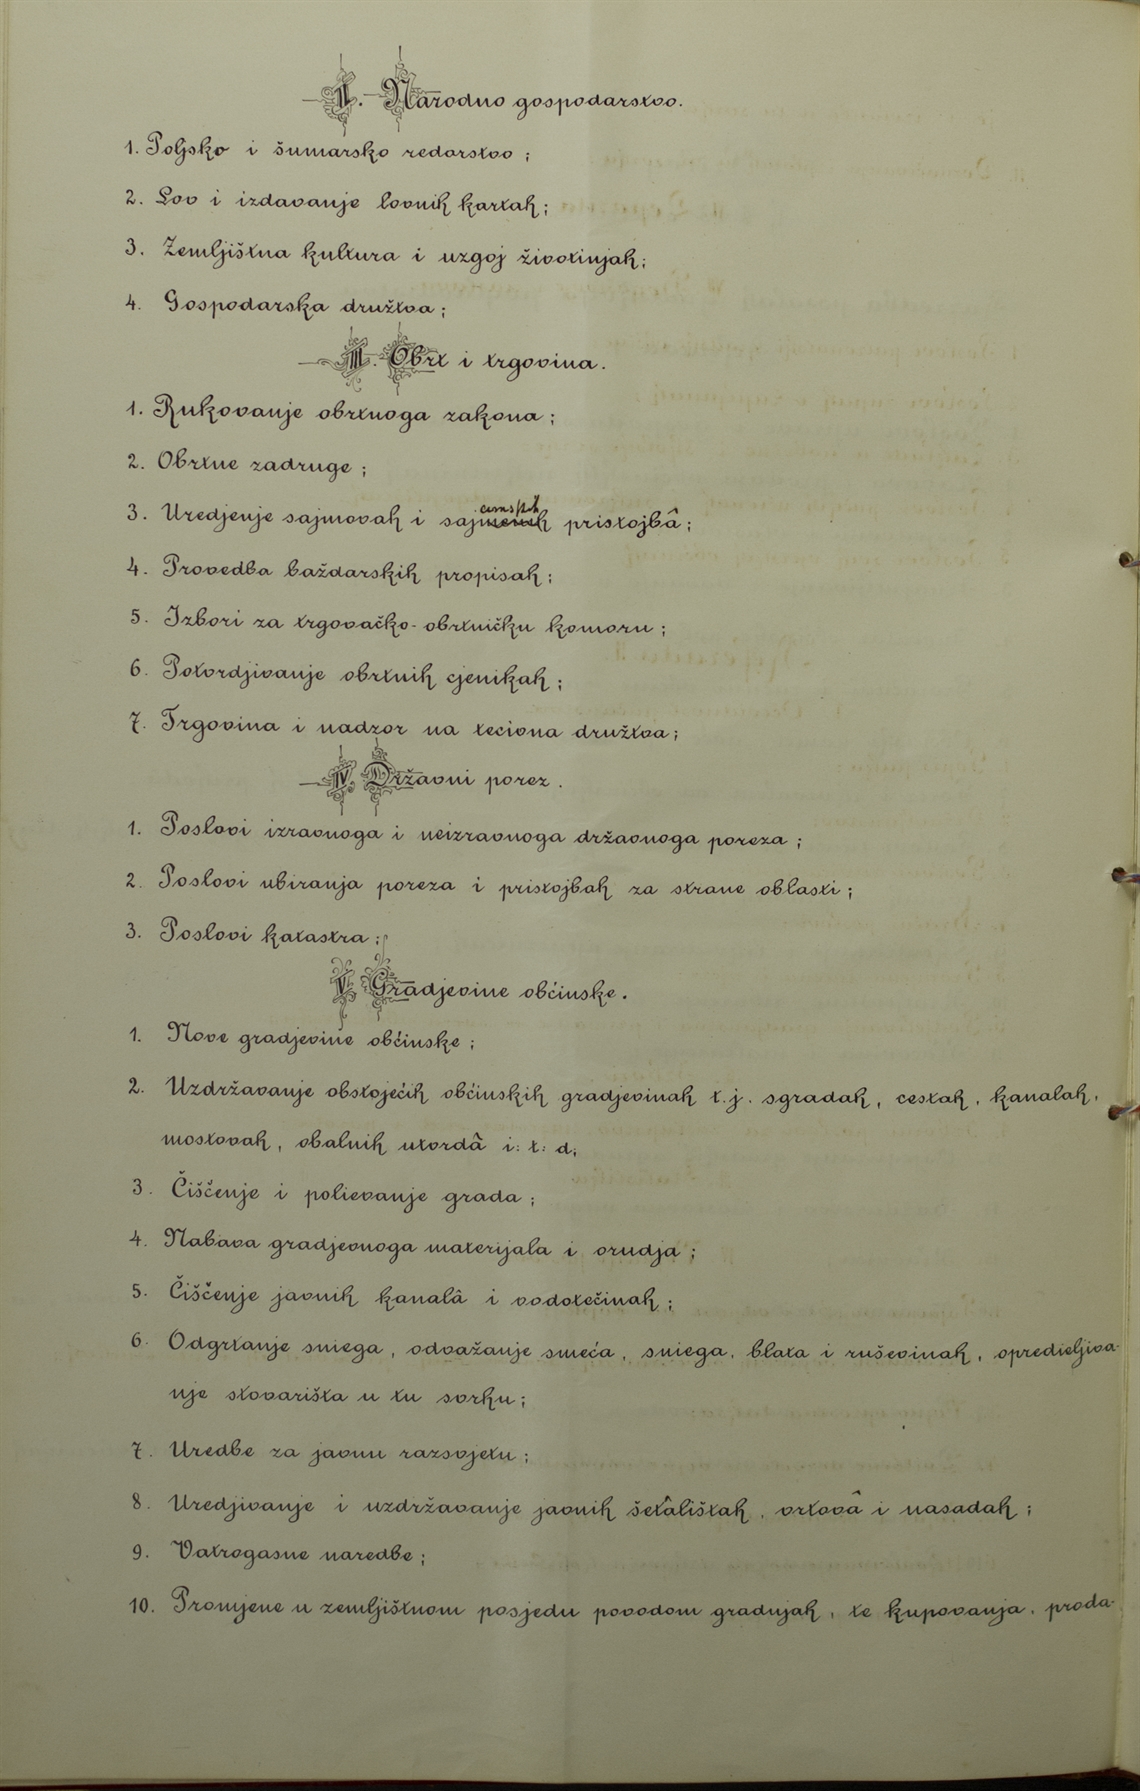 II. Narodno gospodarstvo.
1. Poljsko i šumarsko redarstvo ;
2. Lov i izdavanje lovnih kartah ;
3. Žemljištna kultura i uzgoj životinjah ;
4. Gospodarska družtva ;
III. Obrt i trgovina.
1. Rukovanje obrtnoga zakona ;
2. Obrtne zadruge ;
3. Uredjenje sajmovah i pristojbâ ;
4. Provedba baždarskih propisah ;
5. Izbori za trgovačko-obrtničku komoru ;
6. Potvrdjivanje obrtnih cjenikah ;
7. Trgovina i nadzor na tecivna družtva ;
IV. Državni porez.
1. Poslovi izravnoga i neizravnoga državnoga poreza ;
2. Poslovi ubiranja poreza i pristojbah za strane oblasti ;
3. Poslovi katastra ;
V. Gradjevine občinske.
1. Nove gradjevine občinske ;
2. Uzdržavanje obstojećih občinskih gradjevinah t.j. sgradah, cestah, kanalah,
mostovah, obalnih utvrdâ i: t: d;
3. Čišćenje i polievanje grada ;
4. Nabava gradjevnoga materijala i orudja ;
5. Čišćenje javnih kanalâ i vodotečinah ;
6. Odgrtanje sniega, odvažanje smeća, sniega, blata i ruševinah, opredieljiva-
nje stovarišta u tu svrhu ;
7. Uredbe za javnu razsvjetu ;
8. Uredjivanje i uzdržavanje javnih šetâlištah, vrtovâ i nasadah ;
9. Vatrogasne naredbe ;
10. Promjene u zemljištnom posjedu povodom gradnjah, te kupovanja, proda-